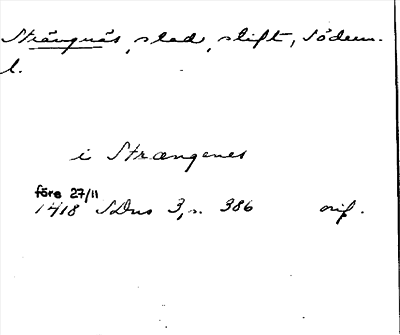 Strängnäs, stad, stift, Söderm.
l.
i Strængenes
före 27/11
1418 SDns 3, s. 386 orig.